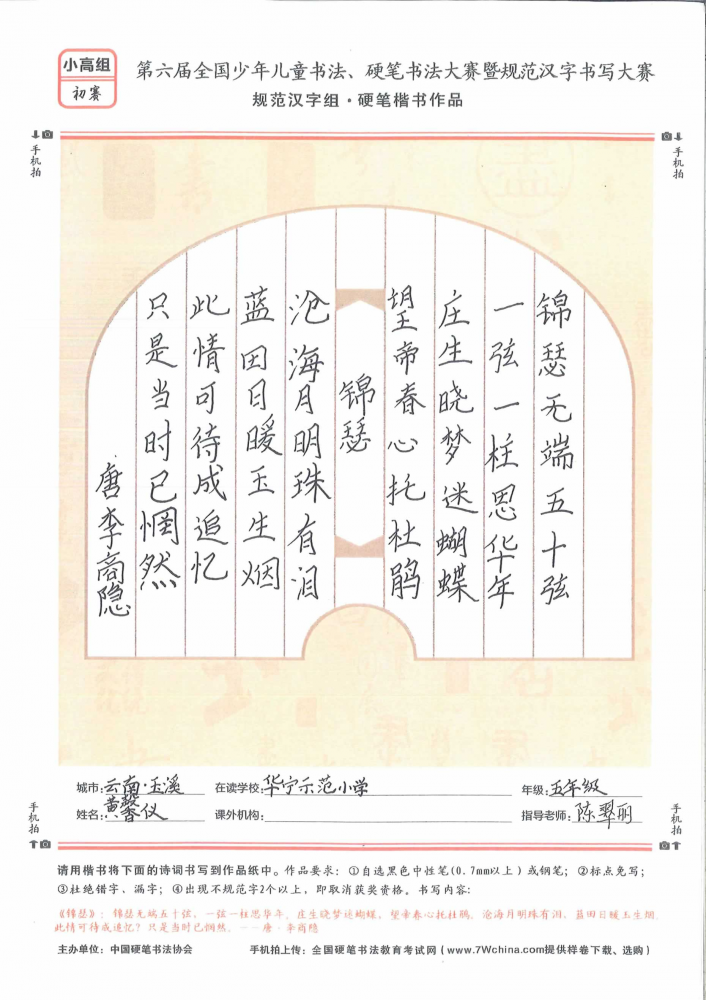 小高组
初赛
第六届全国少年儿童书法、硬笔书法大赛暨规范汉字书写大赛
规范汉字组·硬笔楷书作品
手机拍
手机拍
锦瑟无端五十弦
一弦一柱思华年
庄生晓梦迷蝴蝶
望帝春心托杜鹃
锦瑟
沧海月明珠有泪
蓝田日暖玉生烟
此情可待成追忆
只是当时已惘然
唐李商隐
城市:云南·玉溪 在读学校:华宁示范小学 年级:五年级
姓名:黄馨仪 课外机构: 指导老师:陈翠丽
手机拍
手机拍
请用楷书将下面的诗词书写到作品纸中。作品要求:①自选黑色中性笔(0.7mm以上)或钢笔;②标点免写;
③杜绝错字、漏字;④出现不规范字2个以上,即取消获奖资格。书写内容:
《锦瑟》:锦瑟无端五十弦,一弦一柱思华年。庄生晓梦迷蝴蝶,望帝春心托杜鹃。沧海月明珠有泪,蓝田日暖玉生烟。
此情可待成追忆?只是当时已惘然。——唐·李商隐
主办单位:中国硬笔书法协会 手机拍上传:全国硬笔书法教育考试网(www.7Wchina.com提供样卷下载、选购)